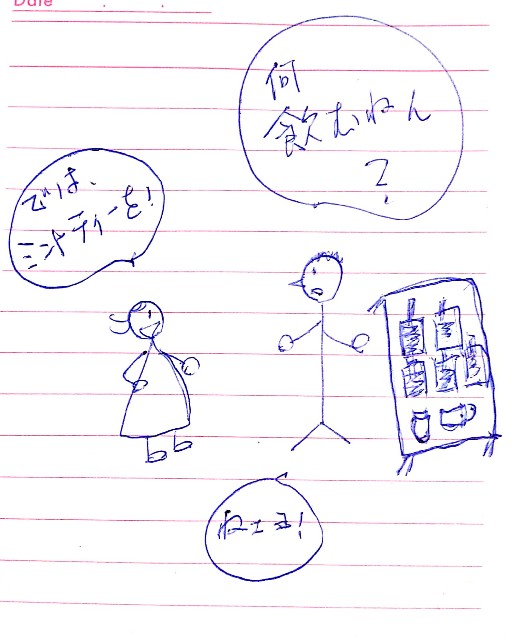 Date
何
飲むねん
?
では、
ミントティーを!
ねェよ!